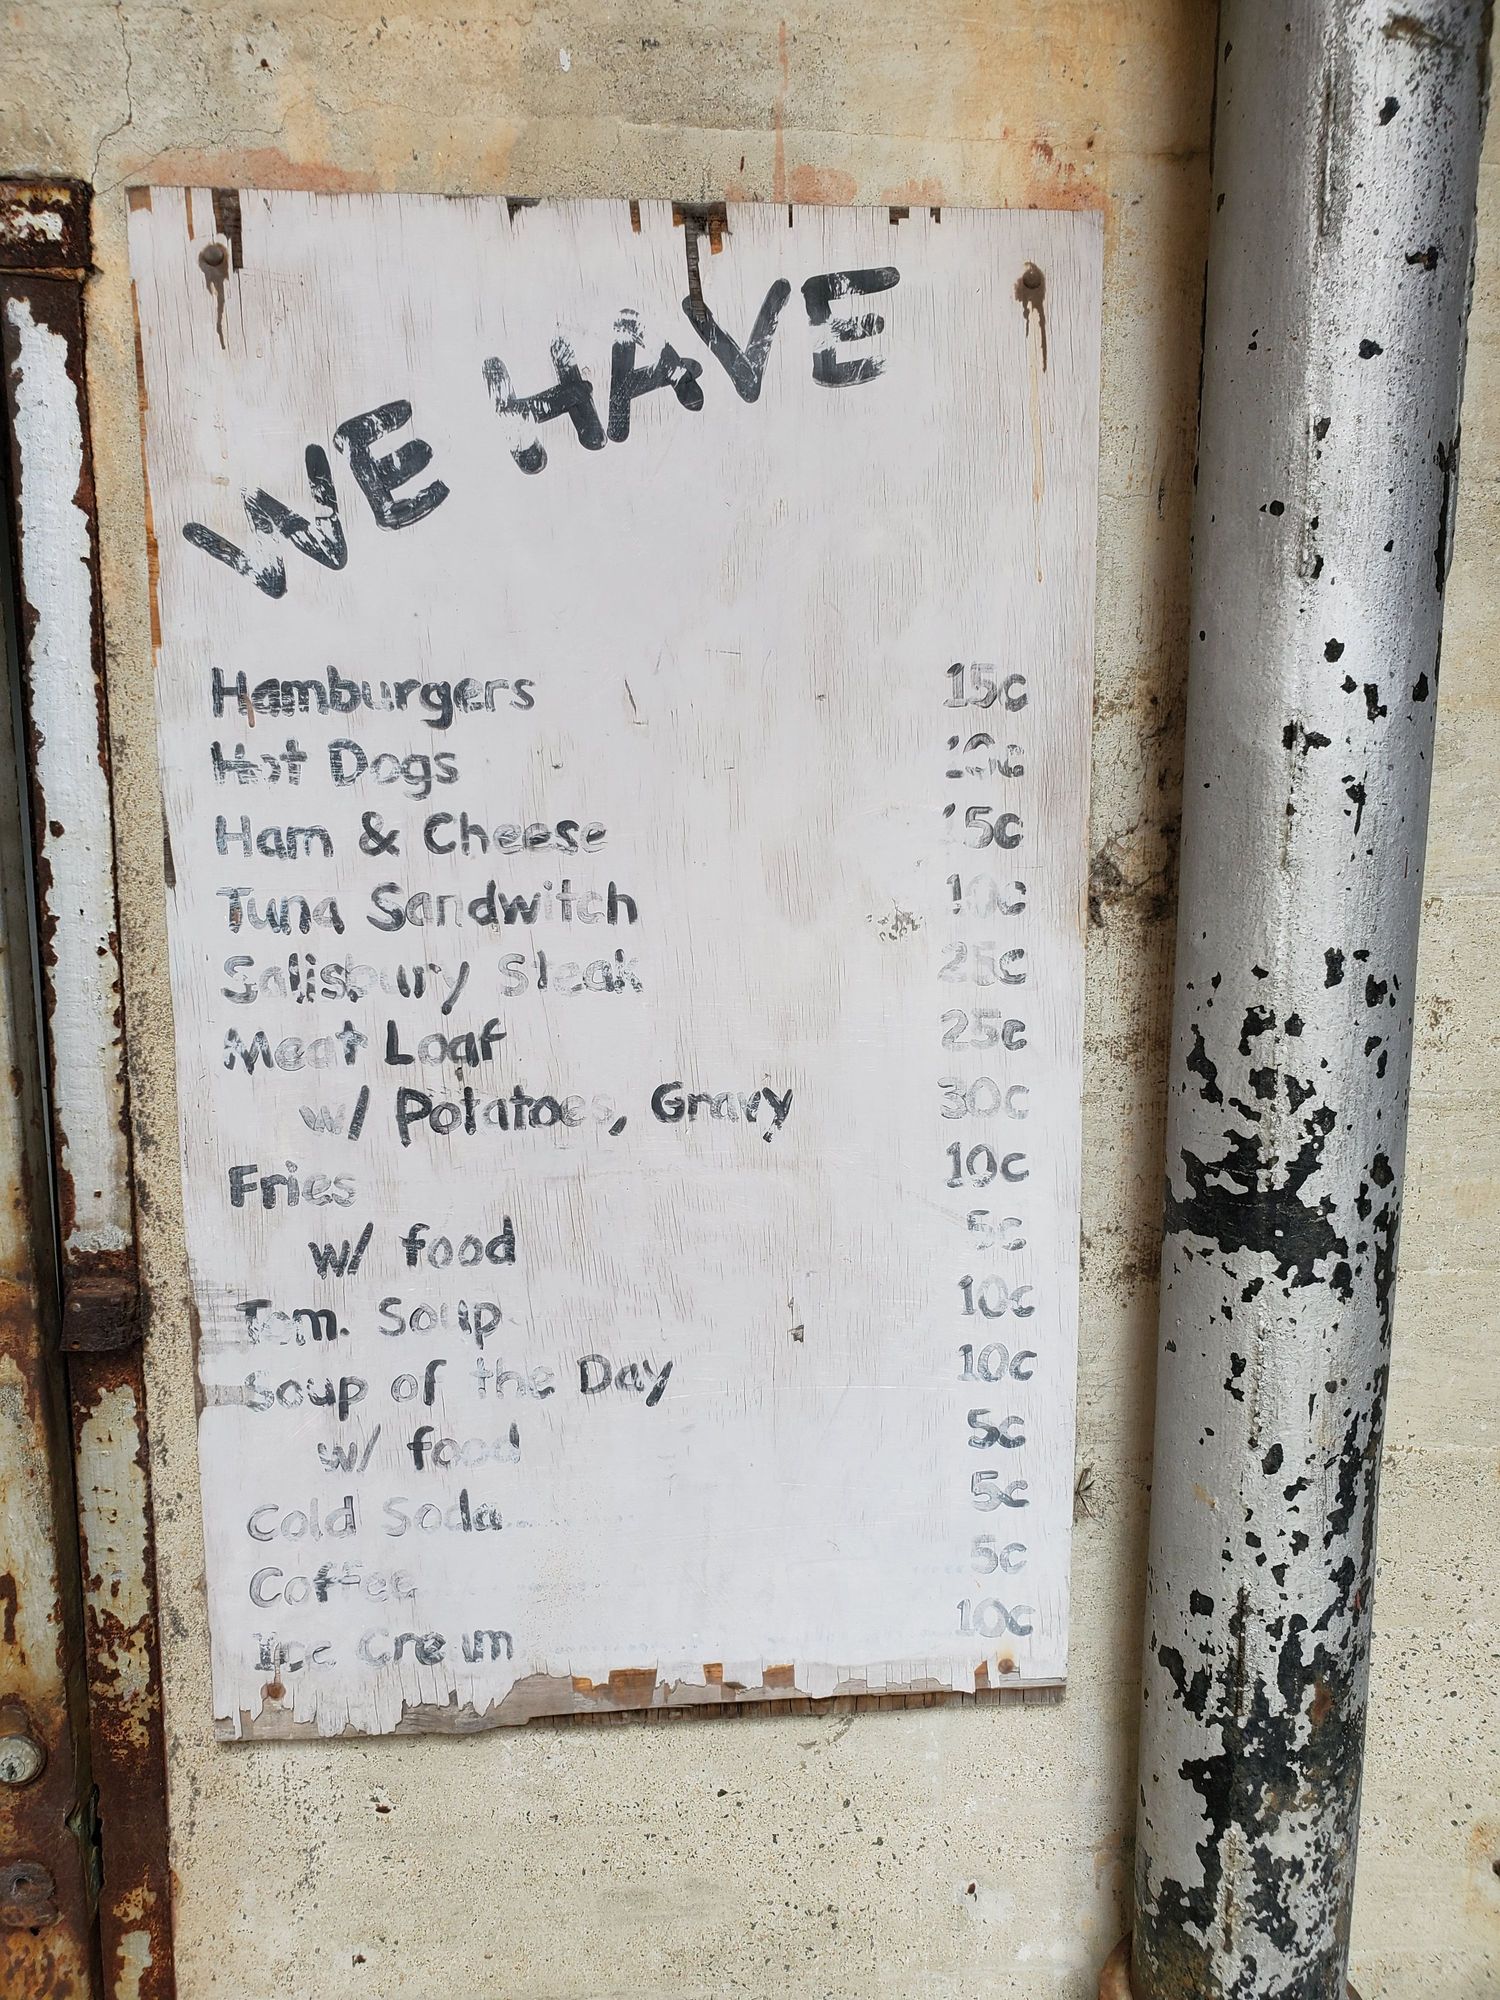 WE HAVE
Hamburgers 15c
Hot Dogs 10c
Ham & Cheese 15c
Tuna Sandwitch 10c
Salisbury Steak 25c
Meat Loaf 25c
w/ Potatoes, Gravy 30c
Fries 10c
w/ food 5c
Tom. Soup 10c
Soup of the Day 10c
w/ food 5c
Cold Soda 5c
Coffee 5c
Ice Cream 10c